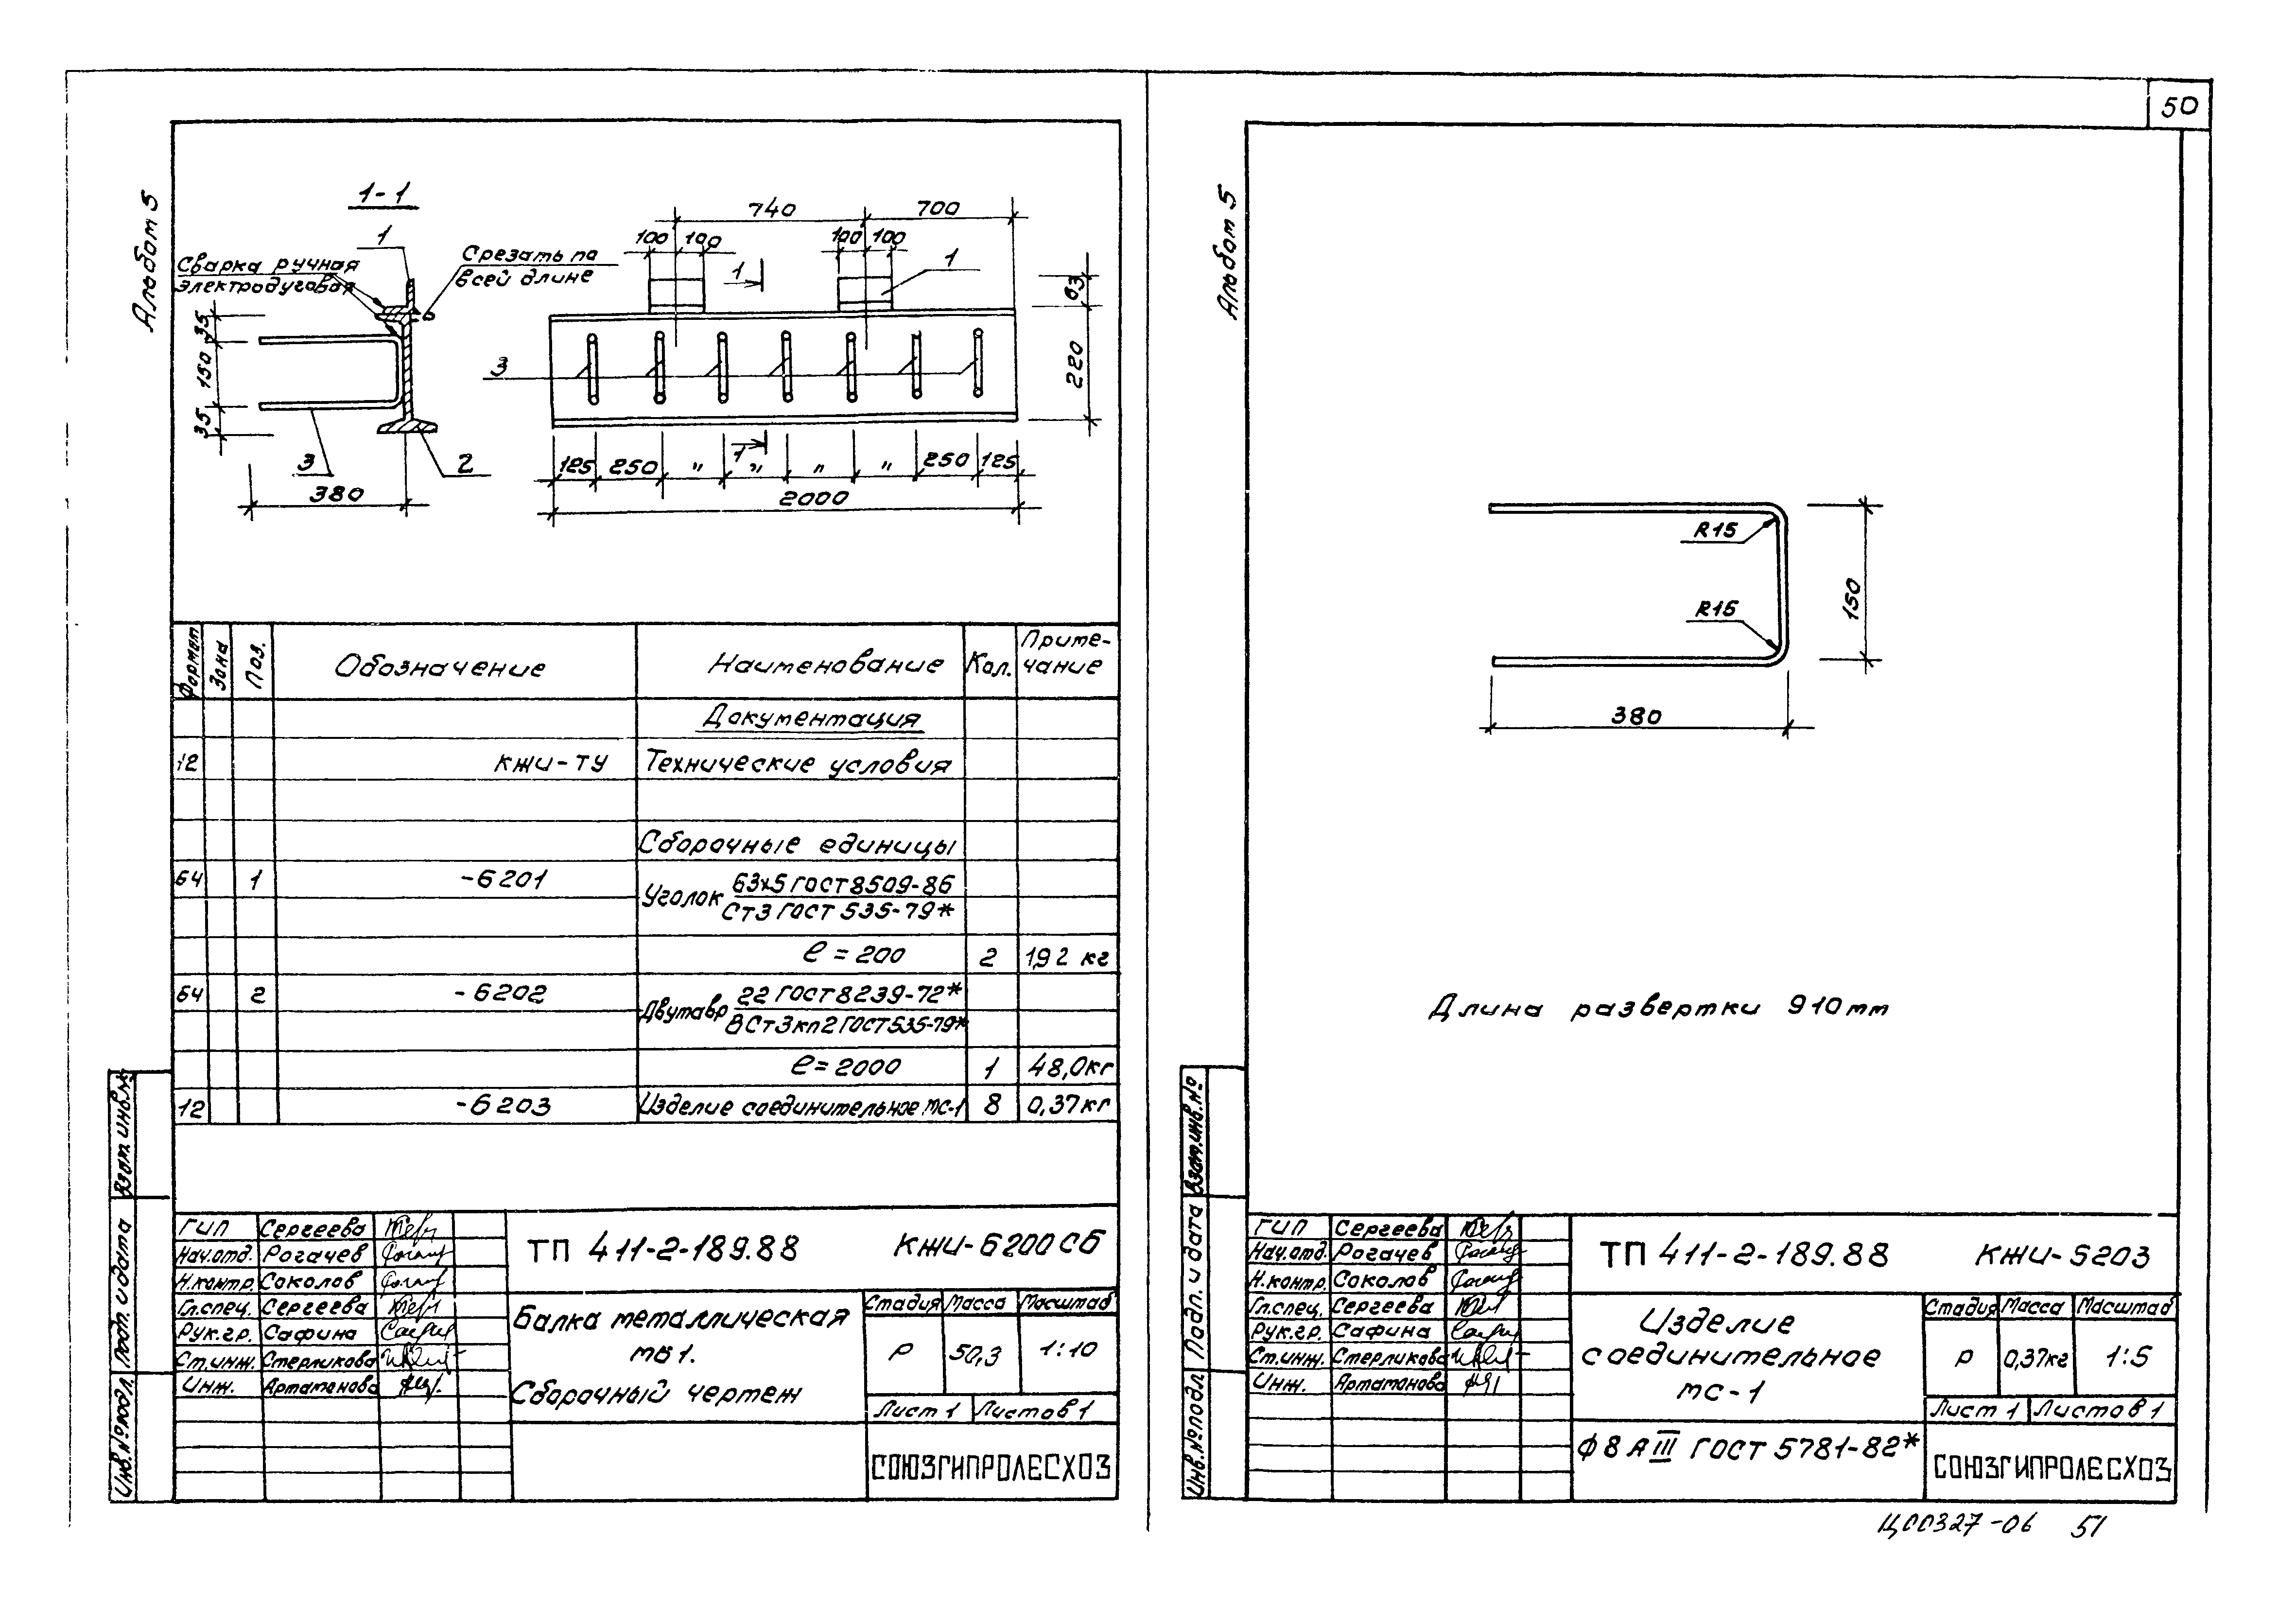 50
Альбом 5
1-1
1
Сварка ручная
электродуговая
Срезать по
всей длине
35
150
35
3
2
380
740
700
100
100
100
100
1
1
63
220
3
1
125
250
"
"
"
"
250
125
2000
Формат
Зона
Поз.
Обозначение
Наименование
Кол.
Приме-
чание
Документация
12 КЖИ-ТУ Технические условия
Сборочные единицы
Б4 1 -6201 Уголок 63х5 ГОСТ 8509-86
Ст3 ГОСТ 535-79*
ℓ = 200 2 1,92 кг
Б4 2 -6202 Двутавр 22 ГОСТ 8239-72*
ВСт3кп2 ГОСТ 535-79*
ℓ = 2000 1 48,0кг
12 -6203 Изделие соединительное мс-1 8 0,37кг
Взам. инв.№
Подп. и дата
Инв.№ подл.
ГИП Сергеева
Нач.отд. Рогачев
Н.контр. Соколов
Гл.спец. Сергеева
Рук.гр. Сафина
Ст.инж. Стерликова
Инж. Артамонова
ТП 411-2-189.88 КЖИ-6200СБ
Балка металлическая
мб1.
Сборочный чертеж
Стадия Масса Масштаб
Р 50,3 1:10
Лист 1 Листов 1
СОЮЗГИПРОЛЕСХОЗ
Альбом 5
R15
R15
150
380
Длина развертки 910мм
Взам.инв.№
Подп. и дата
Инв.№ подл.
ГИП Сергеева
Нач.отд. Рогачев
Н.контр. Соколов
Гл.спец. Сергеева
Рук.гр. Сафина
Ст.инж. Стерликова
Инж. Артамонова
ТП 411-2-189.88 КЖИ-6203
Изделие
соединительное
мс-1
Стадия Масса Масштаб
Р 0,37кг 1:5
Лист 1 Листов 1
Ф 8 А III ГОСТ 5781-82*
СОЮЗГИПРОЛЕСХОЗ
Ц00327-06 51